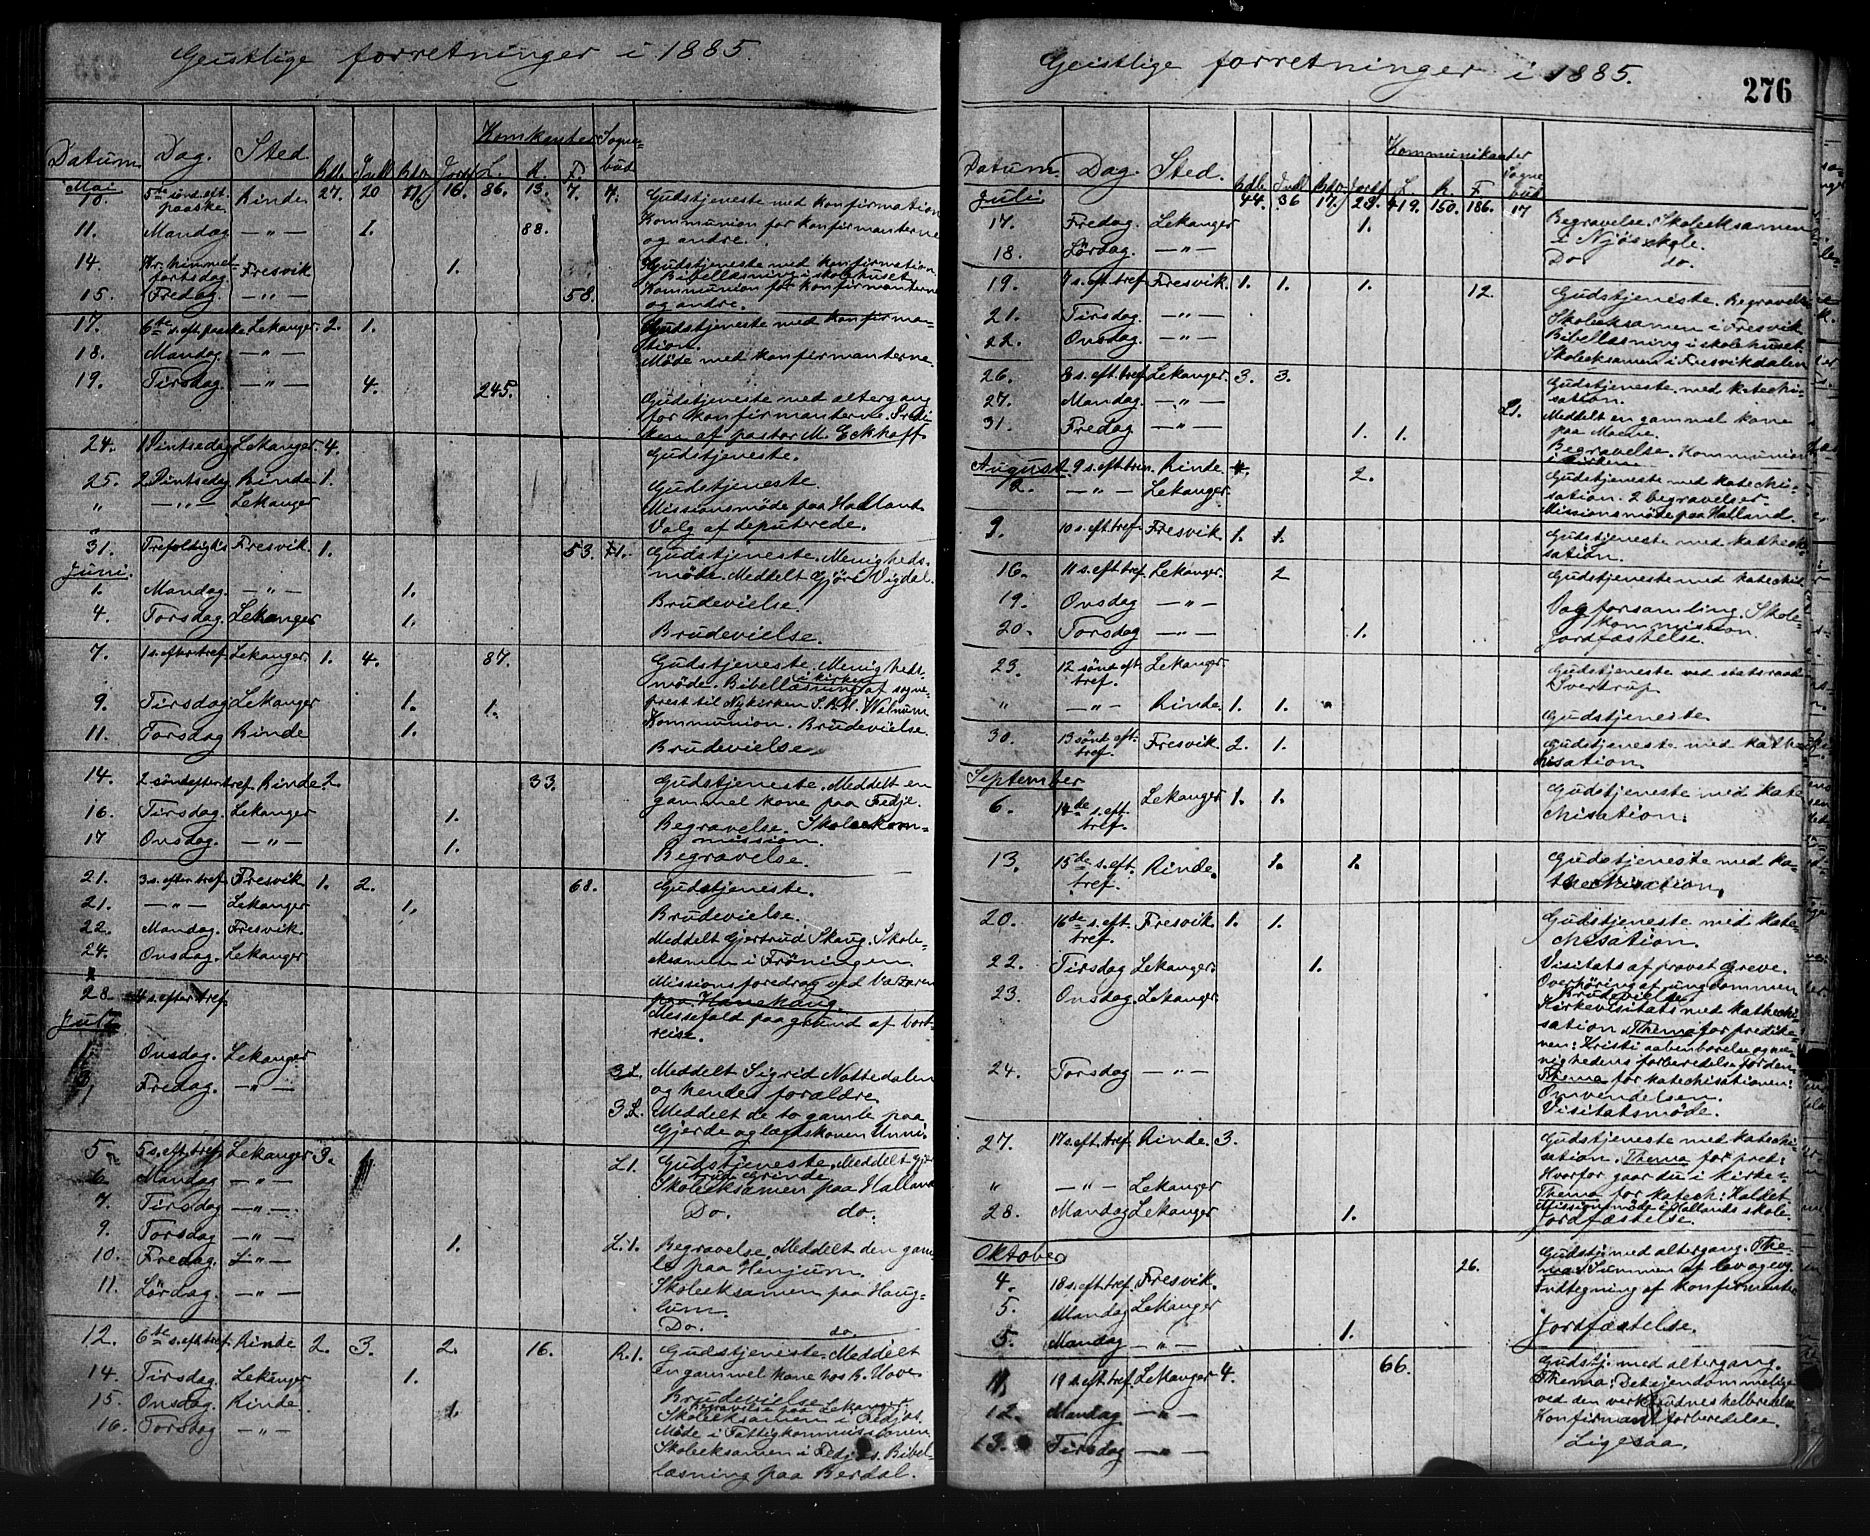 Geistlige forretninger i 1885.
Datum. Dag. Sted. Komkanter Sogne-
bud
L. R. F.
Mai 5te sönd. eft. Rinde 27. 20 16. 86. 13. 7. 7. Gudstjeneste med konfirmation
10. paaske
11. Mandag — " — 1. 88. Kommunion for konfirmanterne
og andre.
14. Kr. himmel- Fresvik 1. Gudstjeneste med konfirmation
fartsdag Bibellæsning i skolehuset
15. Fredag — " — 58. Kommunion for konfirmanterne
og andre.
17. 6te s. eft. paaske Lekanger. 2. 1. Gudstjeneste med konfirma-
tion.
18. Mandag. — " — Möde med konfirmanterne.
19. Tirsdag. — " — 4. 245. Gudstjeneste med altergang
for konfirmanterne. Prædi-
ken af pastor M. Eckhoff
24. 1 Pintsedag Lekanger. 4. Gudstjeneste.
25. 2 Pintsedag Rinde 1. Gudstjeneste
" — " — Lekanger Missionsmöde paa Halland
Valg af deputerede.
31. Trefoldighs Fresvik. 1. 53. 1. Gudstjeneste. Menigheds-
möde. Meddelt Gjöri Vigdal.
Juni.
1. Mandag. — " — 1. Brudevielse.
4. Torsdag. Lekanger 1. Brudevielse.
7. 1 s. efter tref. Lekanger. 1. 4. 87. Gudstjeneste. Menigheds-
möde. Bibellæsning i kirken af sogne-
prest til Nykirken Walnum
9. Tirsdag Lekanger 1. 1. Kommunion. Brudevielse.
11. Torsdag Rinde 1. Brudevielse.
14. 2 sönd efter tref. Rinde. 2 33. Gudstjeneste. Meddelt en
gammel kone paa Fedje.
16. Tirsdag. Lekanger 1. Begravelse. Skolekom-
mission.
17 Onsdag. — " — 1. Begravelse.
21. 3 s. efter tref. Fresvik 1. 2. 68. Gudstjeneste.
21. — " — Lekanger 1. Brudevielse.
22. Mandag. Fresvik. Meddelt Gjertrud Skaug. Skole-
24. Onsdag. Lekanger eksamen i Fröningen
Missionsforedrag
paa Hanekaug.
28. 4 s. efter tref. Messefald paa grund af bort-
reise.
Juli
Onsdag. Lekanger 3 L. Meddelt Sigrid Nottedalen
Fredag. — " — og hendes forældre
3 L. Meddelt de to gamle paa
Gjerde og lægdskonen Unni.
5 5 s. eft. tref. Lekanger 3. L 1. Gudstjeneste. Meddelt Gjer-
trud Grinde
6. Mandag — " — Skoleeksamen paa Halland
7. Tirsdag — " — Do. do.
9. Torsdag — " — 1. L. 1. Begravelse. Meddelt den gam-
10. Fredag. — " — le paa Henjum.
11. Lördag. — " — Skoleeksamen paa Haug-
lum.
Do. do.
12. 6te s. eft. tref. Rinde 2. 3. 2. 16. R. 1. Gudstjeneste. Meddelt
en gammel kone hos R. Hove
14. Tirsdag. Lekanger 1. Brudevielse
15. Onsdag. Rinde 1. Begravelse paa Lekanger
Skoleeksamen i Fedjos.
16. Torsdag — " — Möde i Fattigkommissionen
Skoleeksamen i Fedjos. Bibel-
læsning paa Berdal.
Geistlige forretninger i 1885.
276
Datum. Dag. Sted. Kommunikanter Sogne-
bud
L. R. F.
Juli 44. 36 17. 29. 419. 150. 186. 17
17. Fredag. Lekanger 1. Begravelse. Skoleeksamen
i Njös skole.
18. Lördag. — " — Do do.
19. 7 s. eft. tref. Fresvik. 1. 1. 1. 12. Gudstjeneste. Begravelse
21. Tirsdag. — " — Skoleeksamen i Fresvik
22. Onsdag. — " — Bibellæsning i skolehuset.
Skoleeksamen i Fresvikdalen
26. 8 s. eft. tref. Lekanger. 3. 3. Gudstjeneste med katechi-
sation.
27. Mandag. — " — 21. Meddelt en gammel kone
paa Moene.
31. Fredag — " — 1. 1. Begravelse. Kommunion
August 9 s. eft. tref. Rinde 2. Gudstjeneste med katechi-
2. — " — Lekanger. sation. 2 begravelser
Missionsmöde paa Halland.
9. 10 s. eft. tref. Fresvik. 1. 1. Gudstjeneste med kateche-
sation.
16. 11 s. eft. tref. Lekanger. 2 Gudstjeneste med katechis.
19. Onsdag — " — Valgforsamling. Skole-
kommission.
20. Torsdag — " — 1. Jordfæstelse.
23. 12 sönd. eft. Lekanger. Gudstjeneste ved statsraad
tref. Svertrup
" — " — Rinde. 1. 1. Gudstjeneste
30. 13 sönd. eft. Fresvik 2. 1. Gudstjeneste med kathe-
tref. chisation.
September
6. 14de s. eft. Lekanger. 1. 1. Gudstjeneste med kate-
tref. chisation.
13. 15de s. eft. Rinde. 1. 1. Gudstjeneste med ka-
tref. thechisation.
20. 16de s. eft. Fresvik 1. 1. Gudstjeneste med kate-
tref. chisation.
22. Tirsdag Lekanger. 1. Visitats af provst Greve.
Overhöring af ungdommen
Brudevielse
23. Onsdag. Lekanger. Kirkevisitats med kathechi-
sation. Thema for prædike-
nen: Kristi aabenbarelse og me-
nighedens forberedelse for den.
24. Torsdag — " — Thema for katechisationen:
Omvendelsen.
Visitatsmöde.
27. 17 s. eft. tref. Rinde. 3. Gudstjeneste med katechi-
sation. Thema for præd:
Hvorfor gaar du i kirke-
" — " — Lekanger Thema for katech: Kaldet
Missionsmöde i Hallands skole.
28. Mandag Lekanger 1. Jordfæstelse.
Oktober 26. Gudstj. med altergang. The-
ma: Summen af lov og evg.
4. 18 s. eft. tref. Fresvik. Indtegning af konfirmanter
5. Mandag Lekanger
5. Mandag — " — 1. Jordfæstelse.
11. 19 s. eft. tref. Lekanger 4. 66. Gudstj. med altergang.
Thema: Det ejendommelige
12. Mandag — " — ved den verkbrudnes helbredelse
Konfirmantforberedelse.
13. Tirsdag — " — Ligesaa.